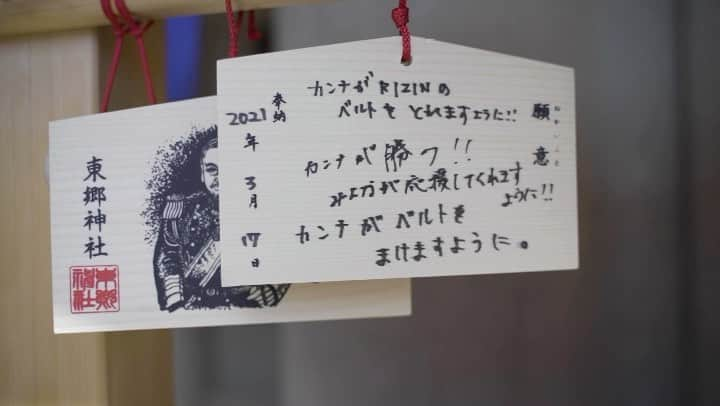 願意
カンナが RIZINの
ベルトを とれますように!!
カンナが 勝つ!!
が応援してくれます
ように!!
カンナが ベルトを
まけますように。
奉納
2021年 3月 17日
東郷神社
東郷
神社